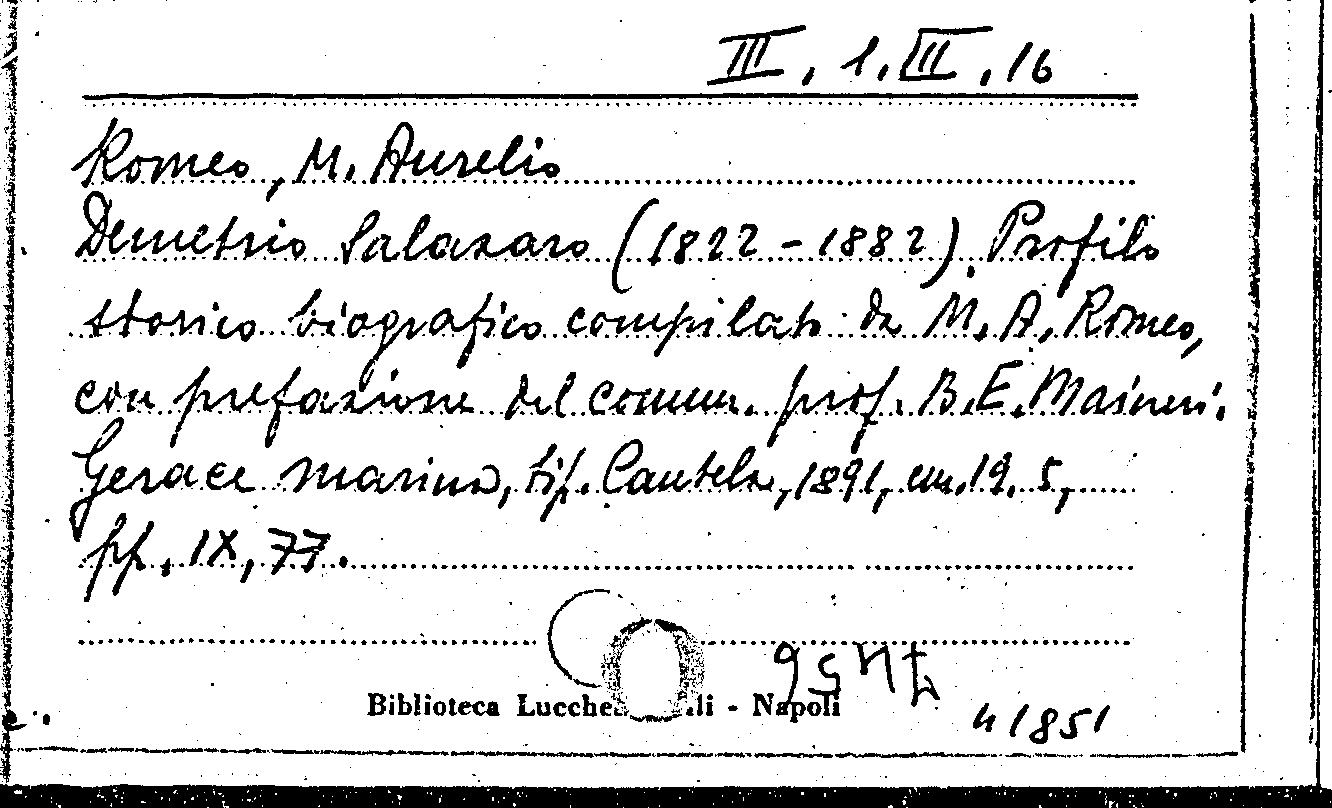 III, 1. III, 16
Romeo, M. Aurelio
Demetrio Salazaro (1822-1882). Profilo
storico biografico compilato da M. A. Romeo,
con prefazione del comm. prof. B. E. Maineri.
Gerace marina, tip. Cautela, 1891, cm. 19. 5,
pp. IX, 77.
Biblioteca - Napoli
41851